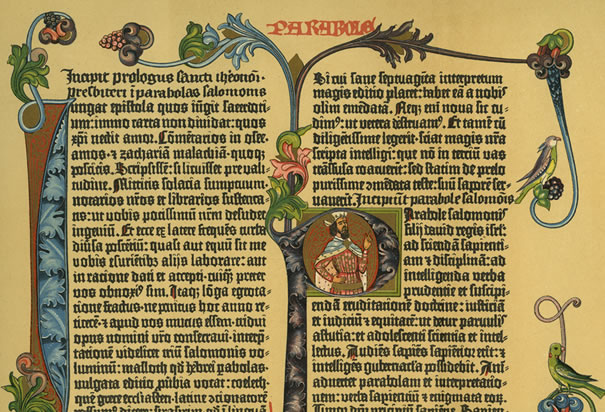 PARABOLE
Incipit prologus sancti iheronimi
presbiteri i parabolas salomonis
Iungat epistola quos iūgit sacerdoti-
um: immo carta non dividat: quos
xp̄i nectit amor. Cōmētarios in osee.
amos. et zachariā malachiā. quoq;
poscitis. Scripsissē: si licuisset pre vali-
tudine. Mittitis solacia sumptuum.
notarios nr̄os et librarios sustenta-
tis: ut vobis potissimū nr̄m desudet
ingeniū. Et ecce ex latere frequēs turba
diūsa poscētiū: quasi aut equū sit me
vobis esurientibz alijs laborare: aut
in ratione dati et accepti. cuiq; preter
vos obnoxiꝰ sim. Itaq; lōga egrota-
tione fractus. ne penitus hoc anno re-
ticerē. et apud vos mutus essem. tridui
opus nomini vr̄o consecravi. interp-
tationē videlicet triū salomonis vo-
luminū: masloth qd̄ hebrei pabolas.
vulgata editio pūbia vocat: coeleth.
que grece ecclīasten. latine
possumꝰ dicere:
Si cui sane septuaginta interpretum
magis editio placet: habet eā a nobis
olim emēdatā. Neq; eni nova sic cu-
dimꝰ: ut vetera destruamꝰ. Et tamē cū
diligētissime legerit. sciat magis nr̄a
scripta intelligi: que nō in terciū vas
trāsfusa coacuerīt: sed statim de prelo
purissime cōmēdata teste: suū saporē ser-
vaverīt. Incipiunt parabole salomōis
Parabole salomonis
filij david regis isrl̄:
ad sciendā sapienti-
am et disciplinā: ad
intelligenda verba
prudentie et suscipi-
endā eruditationē doctrine: iusticiā
et iudiciū et equitatē: ut detur parvulis
astutia: et adolescenti scientia et intel-
lectus. Audiēs sapiēs sapiētior erit: et
intelligēs gubernacla possidebit. Ani-
advertet parabolam et interpretatio-
nem: verba sapientiū et enigmata eorū.
Timor dn̄i principiū sapiētie.